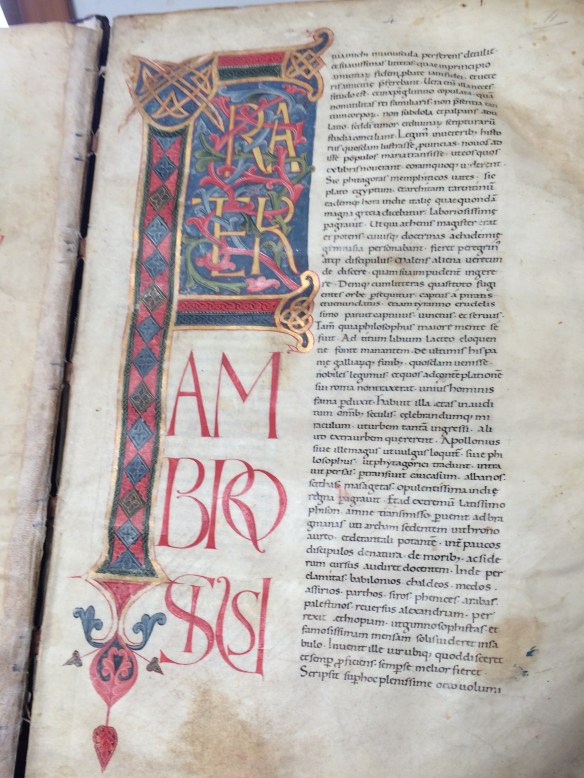 FRA
TER
AM
BRO
SIUS
tua michi munuscula perferens detulit
et suauissimas litteras quae inprincipio
amicitiae fidem probatae iam fidei et uete
ris amicitiae preferebant. Uera enim
est et xpi glutino copulata qua
non utilitas rei familiaris non presentia tan
tum corporum non subdola et palpans adu
latio sed di timor et diuinarum scripturarum
studia conciliant. Legimus in ueteribus histo
riis quosdam lustrasse prouincias nouos ad
isse populos maria transisse ut eos quos
exlibris nouerant coram quoque uiderent.
Sic phitagoras memphiticos uates sic
plato egyptum et archiam tarentinum
eademque hora italie quae quondam
magna grecia dicebatur laboriosissime
peragrauit. Ut qui athenis magister erat
et potens cuiusque doctrinas achademie
gimnasia personabant fieret peregrinus
atque discipulus malens aliena uerecun
de discere quam sua impudenter ingere
re. Denique cum litteras quasi toto fugi
entes orbe persequitur captus a piratis
et uenundatus tyranno crudelis
simo paruit captiuus uinctus et seruus.
Tamen quia philosophus maior emente se
fuit. Ad titum liuium lacteo eloquen
tie fonte manantem de ultimis hispa
nie galliarumque finibus quosdam uenisse
nobiles legimus et quos ad contemplationem
sui roma non traxerat unius hominis
fama perduxit. Habuit illa etas inaudi
tum omnibus seculis celebrandumque mi
raculum ut urbem tantam ingressi ali
ud extra urbem quererent. Apollonius
siue ille magus ut uulgus loquitur siue phi
losophus ut phytagorici tradunt intra
uit persas pertransiuit caucasum albanos
scithas massagetas opulentissima indie
regna penetrauit. Et ad extremum latissimo
phison amne transmisso peruenit ad brag
manas ut iarcham sedentem in throno
aureo et detantali potantem inter paucos
discipulos de natura de moribus ac side
rum cursu audiret docentem. Inde per
elamitas babilonios chaldeos medos
assirios parthos siros phenices arabas
palestinos reuersus alexandriam per
rexit aethiopiam ut gimnosophistas et
famosissimam mensam solis uideret insa
bulo. Inuenit ille uir ubique quod disceret
et semper proficiens semper se melior fieret.
Scripsit super hoc plenissime octo uolumi